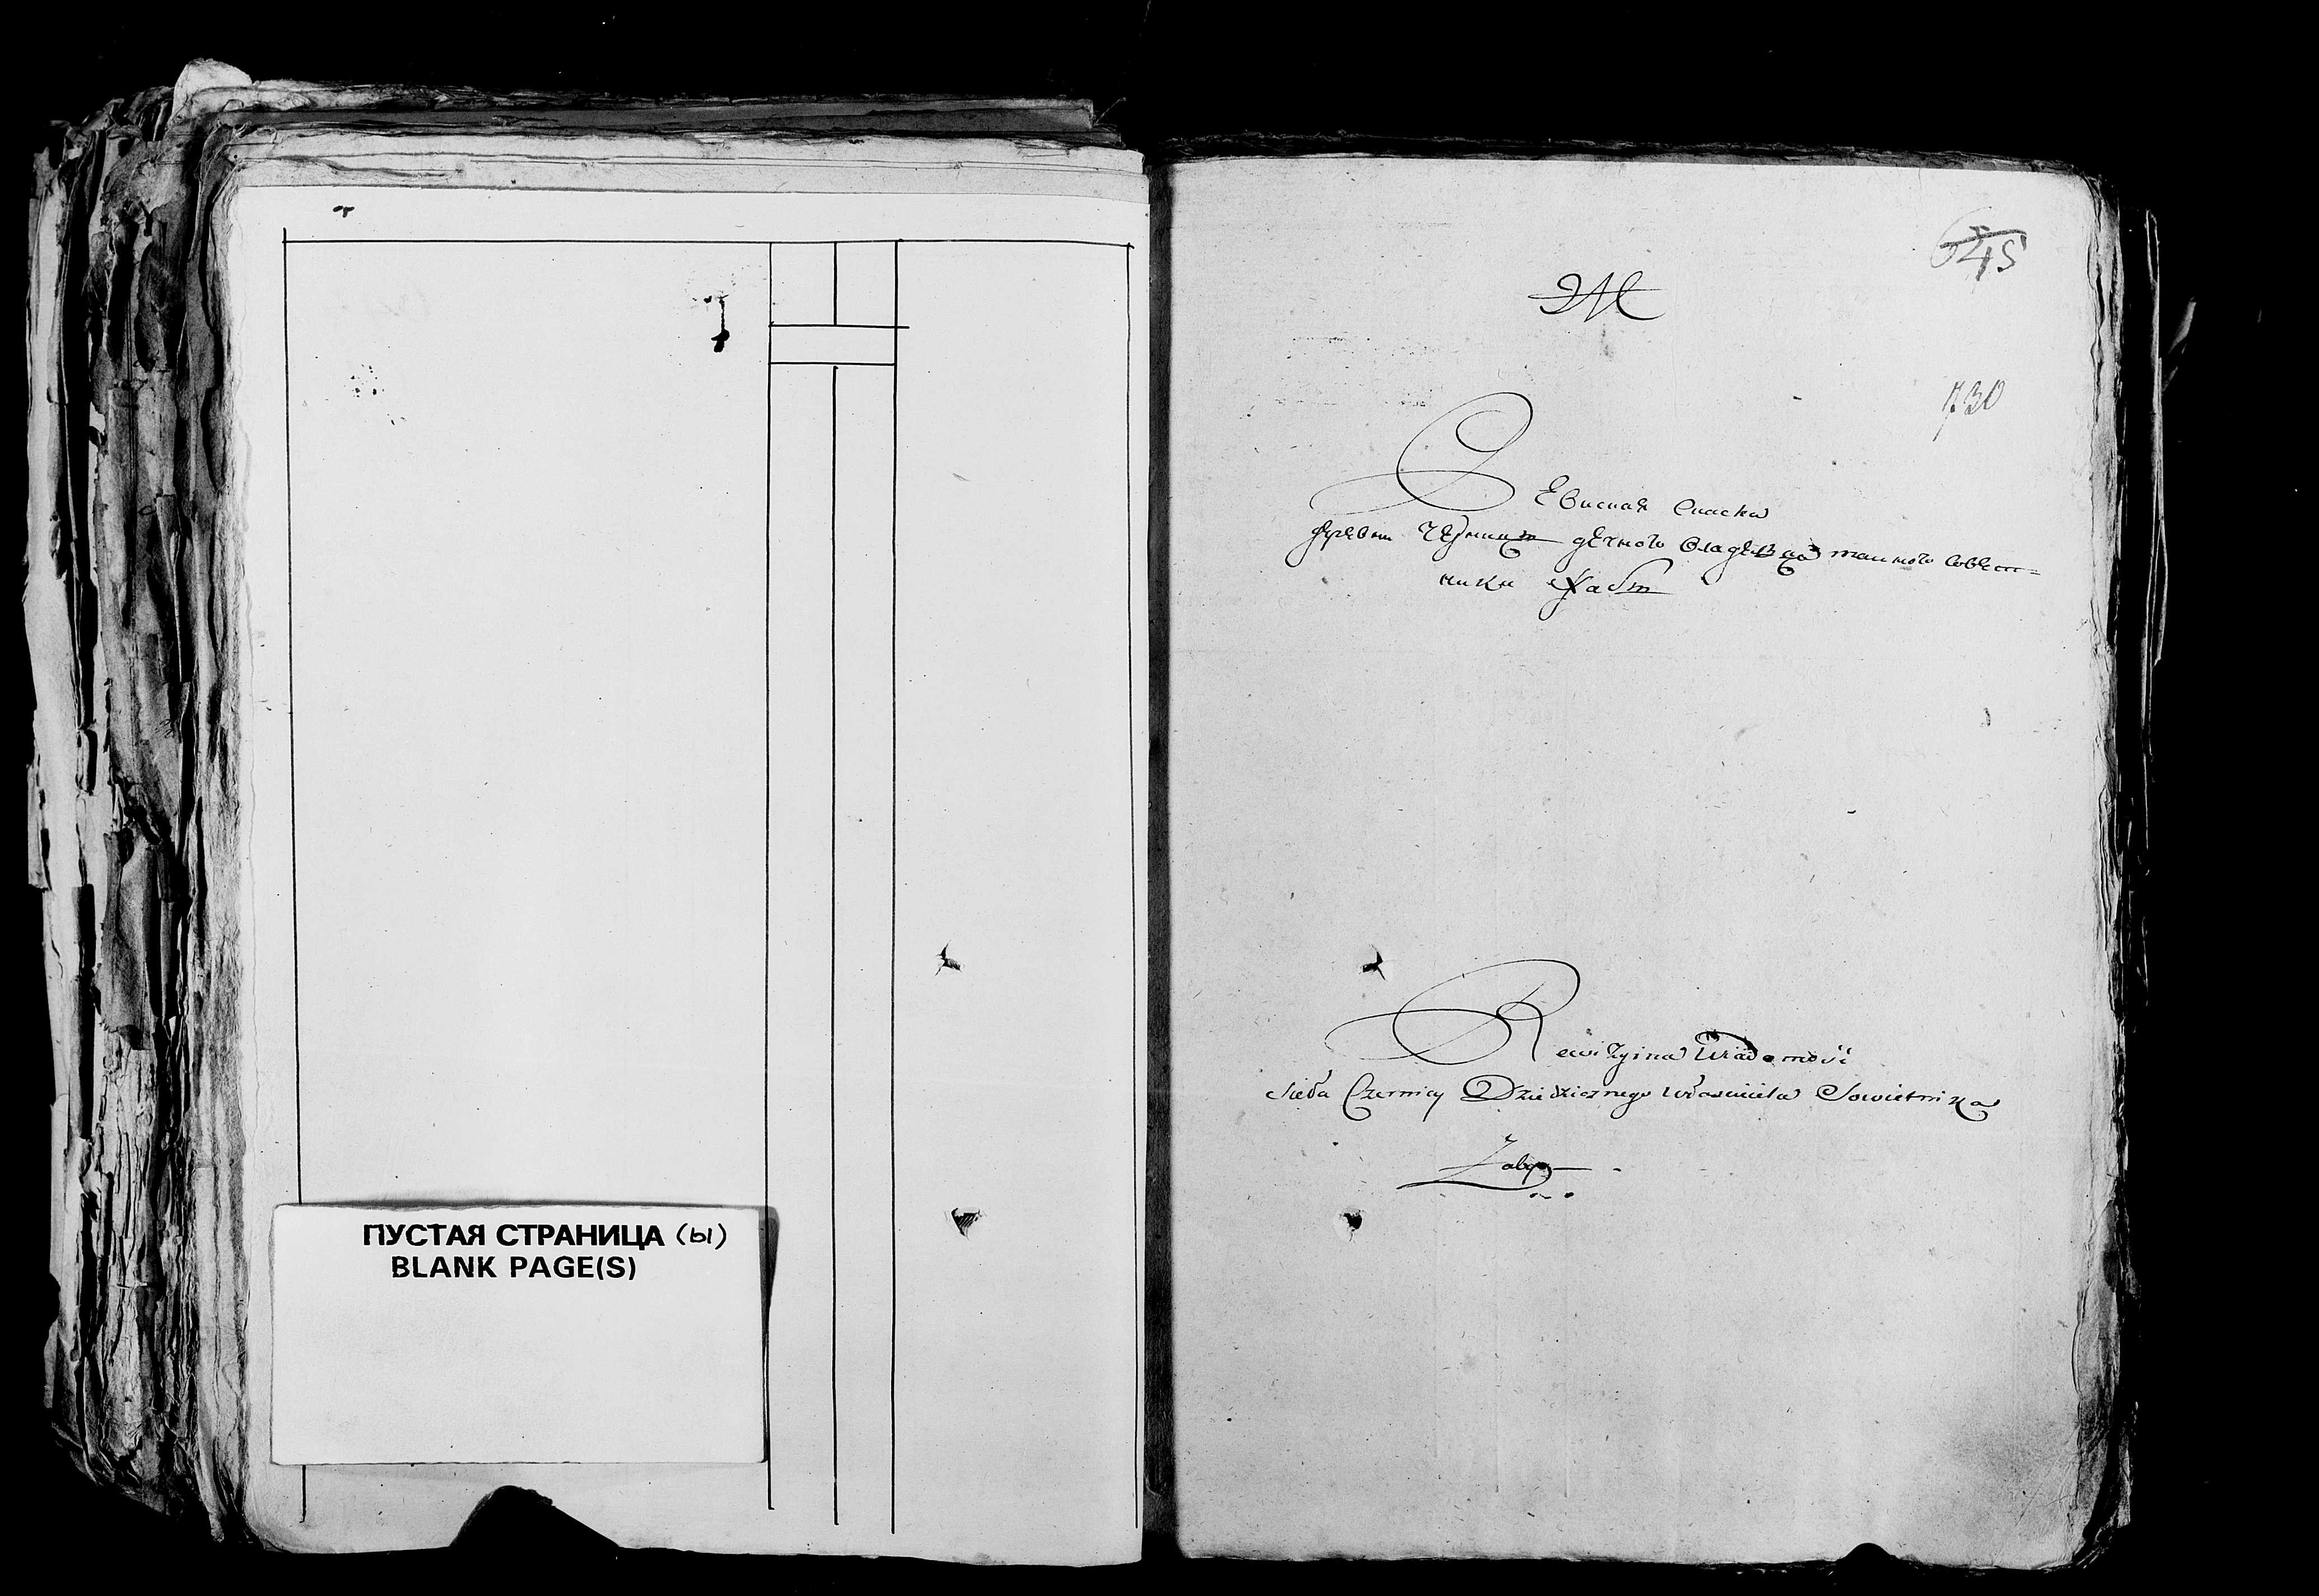 ПУСТАЯ СТРАНИЦА (ы)
BLANK PAGE(S)
645
Ж
730
Ревиская Скаска
деревни Черницы вечного владельца тайного совет=
ника Жабы
Rewizyina Wiadomość
Sieła Czernicy Dziedzicznego właściciela Sowietnika
Żaby